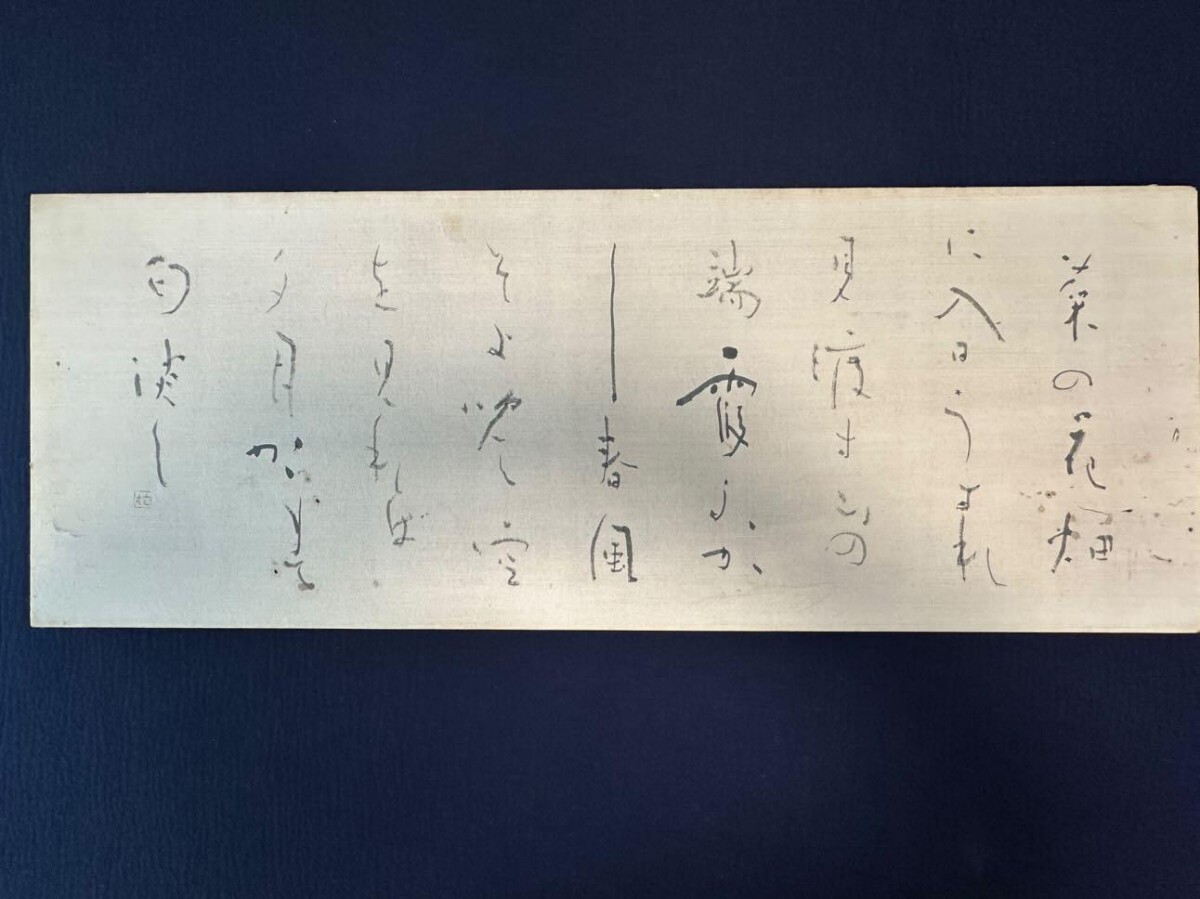 菜の花畑
に入日うすれ
見渡す山の
端霞ふか
し春風
そよ吹く空
を見れば
夕月かゝりて
匂淡し